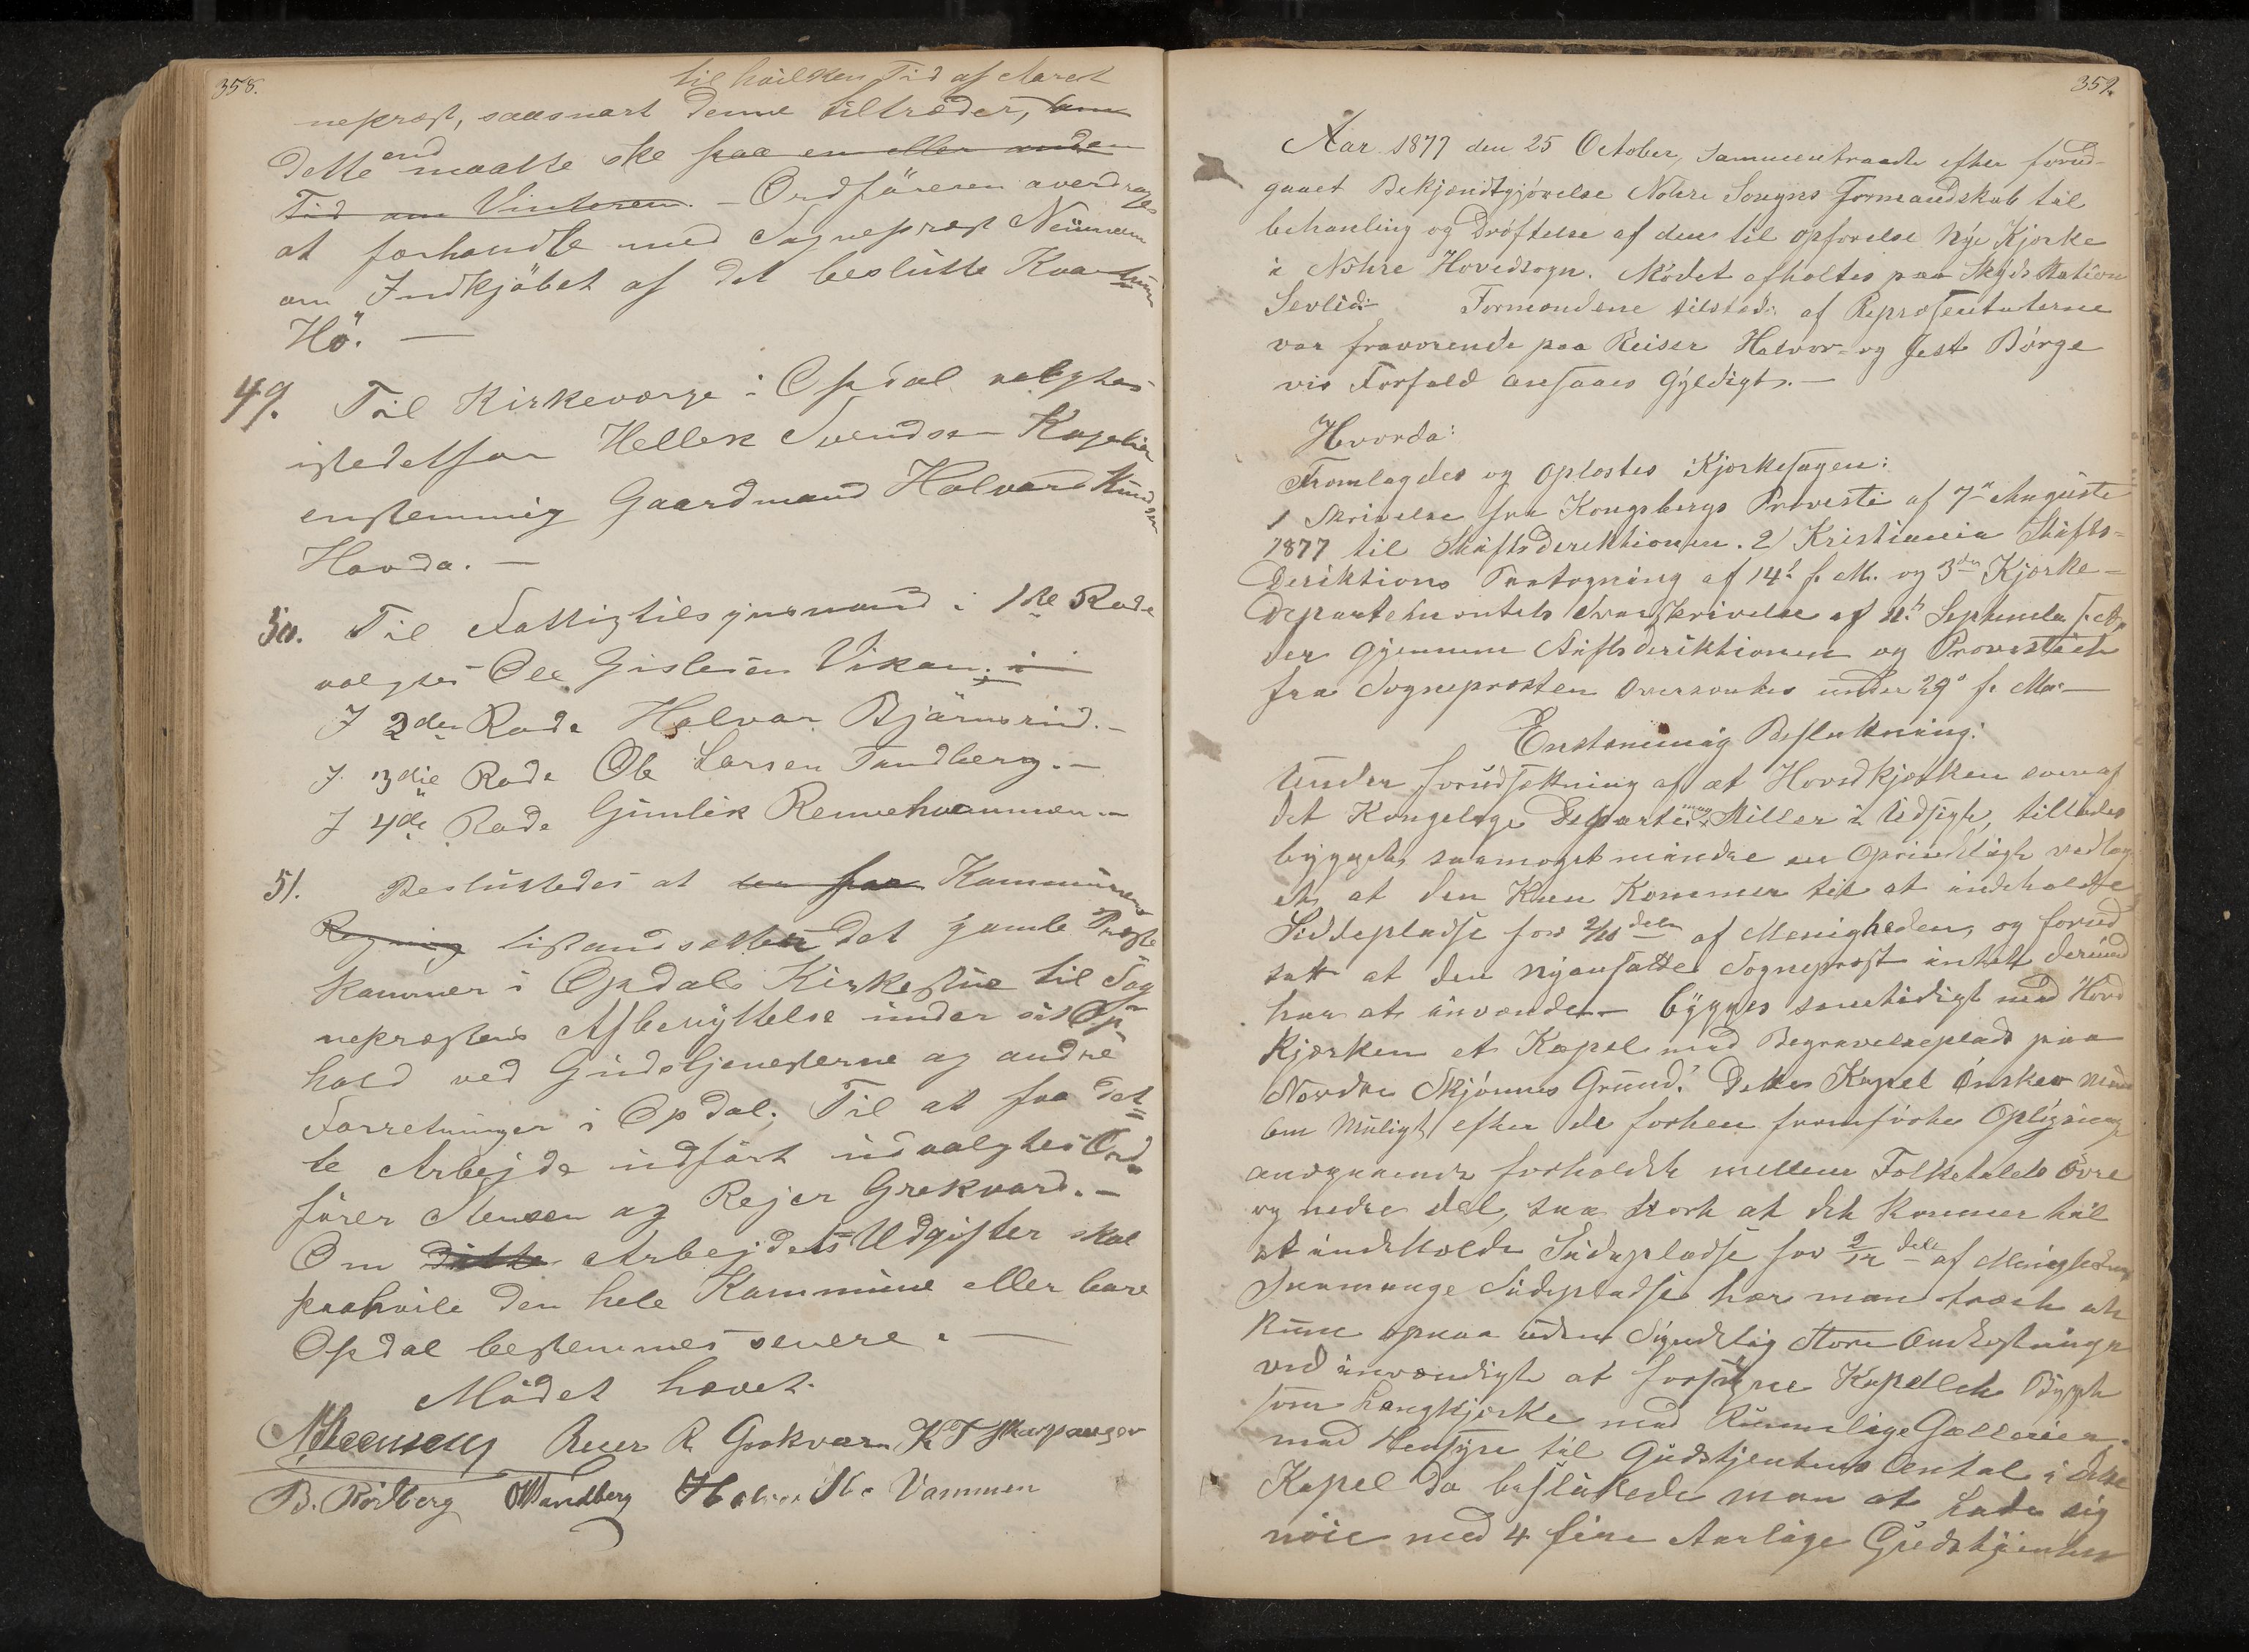 358.
til hvilken Tid af Aaret
nepræst, saasnart denne tiltræder, om
dette end maatte ske paa en eller anden
Tid om Vinteren. – Ordföreren averdrages
at forhandle med Sognepræst Neümann
om Indkjöbet af det beslütte Kvantüm
Hö. —
49. Til Kirkeværge i Opdal valgtes
istedetfor Hellek Svendsen
enstemmig Gaardmand Halvard Knudsen
Hovda. —
50. Til Fattigtilsynsmand i 1ste Rode
valgtes Ole Gislesen Vikan. i
I 2den Rode Halvar Bjärnsrüd. –
I 3die Rode Ole Larsen Tandberg. –
I 4de Rode Günlik Rennehvammen. –
51. Beslüttedes at for Kammünens
Regning istandsætter det gamle Præste
kammer i Opdals Kirkestue til Sog
nepræstens Afbenyttelse ünder sit Op-
hold ved Güdstjenesterne og andre
Forretninger i Opdal. Til at faa det=
te Arbejde üdfört üdvalgtes Ord
förer Steensen og Rejer Grøkvard. –
Om dette Arbejdets Udgifter skal
paahvile den hele Kammüne eller bare
Opdal bestemmes senere. —
Mödet hævet.
NSteensen Reier R Grokvarn K T
B. Rödberg OTTandberg Halvor Vammen
359.
Aar 1877 den 25 October, Sammentraadte efter forud-
gaaet Bekjendtgjörelse Nohre Songns Formandskab til
behanling og Dröftelse af den til opförelse Nye Kjerke
i Nohre Hovedsogn. Mödet afholtes paa Skyds Station
Sevlid: Formendene tilsted: af Representanterne
var fraværende paa Reiser Halvor og Jest Börge
vis Forfald ansaaes Gyldigt. —
Hvorda:
Fremlagdes og Oplæstes Kjerkesagen:
1 Skrivelse fra Kongsbergs Provesti af 7de Auguste
1877 til Stiftsdirektionen. 2/ Kristiania Stifts=
Deriktions Paategning af 14de f. M. og 3die Kjerke=
Departementets Svarskrivelse af 11te September f. A.
der gjennem Stiftsderiktionen og Provstiet
fra Sognepresten Oversendtes under 29de f. M. —
Enstemmig Beslutning:
Under forudsetning af at Hovedkjerken som af
det Kongelige Departement Stiller i Udsigt, tillades
bygget, saameget mindre en Oprindeligt vedtag
et, at den Kun Kommer til at indeholde
Siddepladse for 2/10 dele af Menigheden, og forud
satt at den nyansatte Sogneprest intett derimod
har at invende – bygges samtidigt med Hoved
kjerken et Kapel med Begravelseplads paa
Nordre Skjönnes Grund. Dette Kapel Önsker man
om Muligt efter de forhen fremförte Oplysninger
angaaende forholdet mellem Folketalets Övre
og nedre del, saa stort at det Kommer til
at indeholde Sidepladse for 2/12 dele af Menigheden
Saamange Sidepladse har man troet at
Kunne opnaa uden Synderlig Store Omkostninger
ved invendigt at forsyne Kapellet Bygt
som Langkjerke med Rummelige Gallerier.
med Hensyn til Gudstjenstens Antal i dette
Kapel da besluttede man at Lade sig
nöie med 4 fire Aarlige Gudstjenster